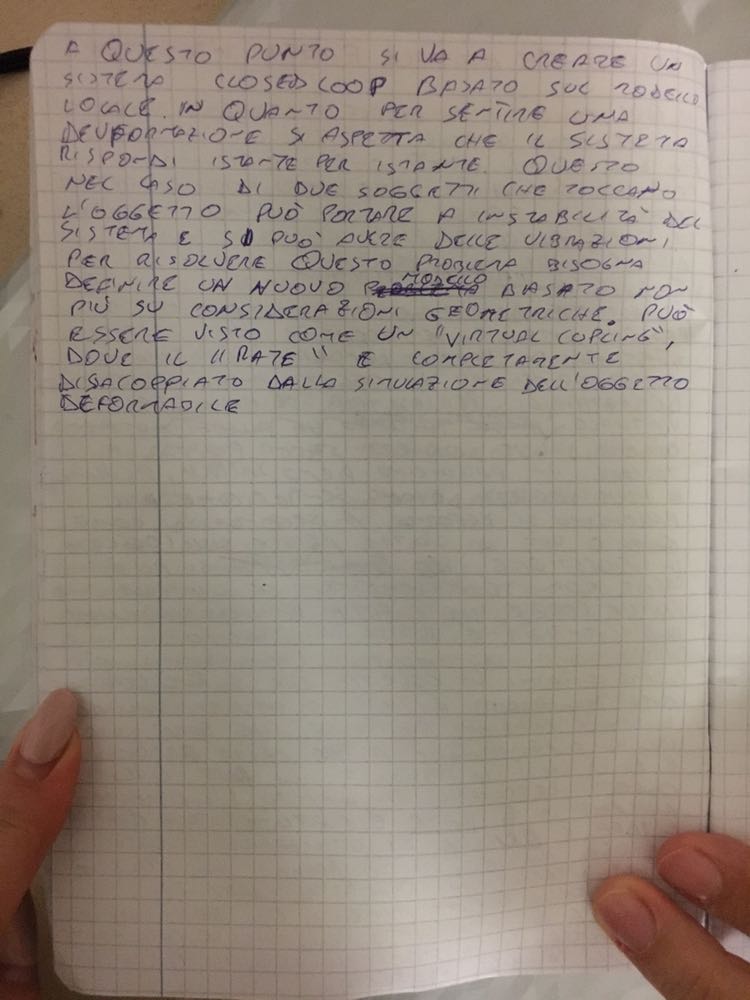 A QUESTO PUNTO SI VA A CREARE UN
SISTEMA CLOSED LOOP BASATO SUL MODELLO
LOCALE. IN QUANTO PER SENTIRE UNA
DEUFORMAZIONE SI ASPETTA CHE IL SISTEMA
RISPONDI ISTANTE PER ISTANTE. QUESTO
NEL CASO DI DUE SOGGETTI CHE TOCCANO
L'OGGETTO PUÒ PORTARE A INSTABILITÀ DEL
SISTEMA E SI PUÒ AVERE DELLE VIBRAZIONI
PER RISOLVERE QUESTO PROBLEMA BISOGNA
DEFINIRE UN NUOVO MODELLO BASATO NON
PIÙ SU CONSIDERAZIONI GEOMETRICHE. PUÒ
ESSERE VISTO COME UN "VIRTUAL CUPLING",
DOVE IL "RATE" E COMPLETAMENTE
DISACOPPIATO DALLA SIMULAZIONE DELL'OGGETTO
DEFORMABILE